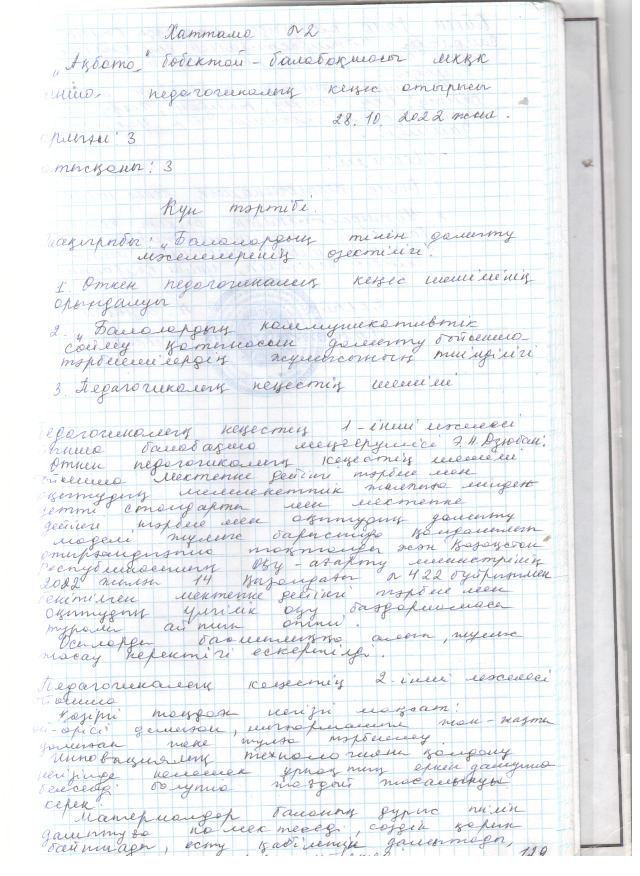 Хаттама №2
"Ақбота" бөбектай-балабақшасы МКҚК
педагогикалық кеңес отырысы
28.10.2022 жыл.
: 3
тысқаны: 3
Күн тәртібі.
Тақырыбы: "Балалардың тілін дамыту
мәселелерінің өзектілігі.
1. Өткен педагогикалық кеңес шешімінің
орындалуы
2. "Балалардың коммуникативтік
сөйлеу қатынасын дамыту бойынша
тәрбиешілердің жұмысының тиімділігі
3. Педагогикалық кеңестің шешімі
Педагогикалық кеңестің 1-інші мәселесі
балабақша меңгерушісі Э.Н.Дзюбан:
Өткен педагогикалық кеңестің шешімі
бойынша Мектепке дейінгі тәрбие мен
оқытудың мемлекеттік жалпыға міндет
стандарты мен мектепке
дейінгі тәрбие мен оқытудың дамыту
моделі жұмыс барысында
тоқталды және Қазақстан
Республикасының Оқу-ағарту министрінің
2022 жылғы 14 қазандағы №422 бұйрығымен
бекітілген мектепке дейінгі тәрбие мен
оқытудың үлгілік оқу бағдарламасы
туралы айтып өтті.
Осыларды басшылыққа алып, жұмыс
жасау керектігі ескертілді.
Педагогикалық кеңестің 2-інші мәселесі
бойынша
Қазіргі таңдағы негізгі мақсат:
дамыған, жан-жақты
дамыған жеке тұлға тәрбиелеу
Инновациялық технологияны қолдану
негізінде келешек ұрпақтың еркін дамуына
белсенді болуына жағдай жасалынуы
керек.
Материалдар баланың дұрыс тілін
дамытуға көмектеседі, сөздік қорын
байытады, есту қабілетін дамытады,